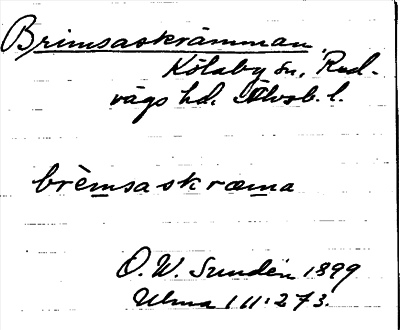 Brimsaskrämman,
Kölaby sn, Red-
vägs hd. Älvsb. l.
brèmsaskræma
O. W. Sundén 1899
Ulma 111:273.